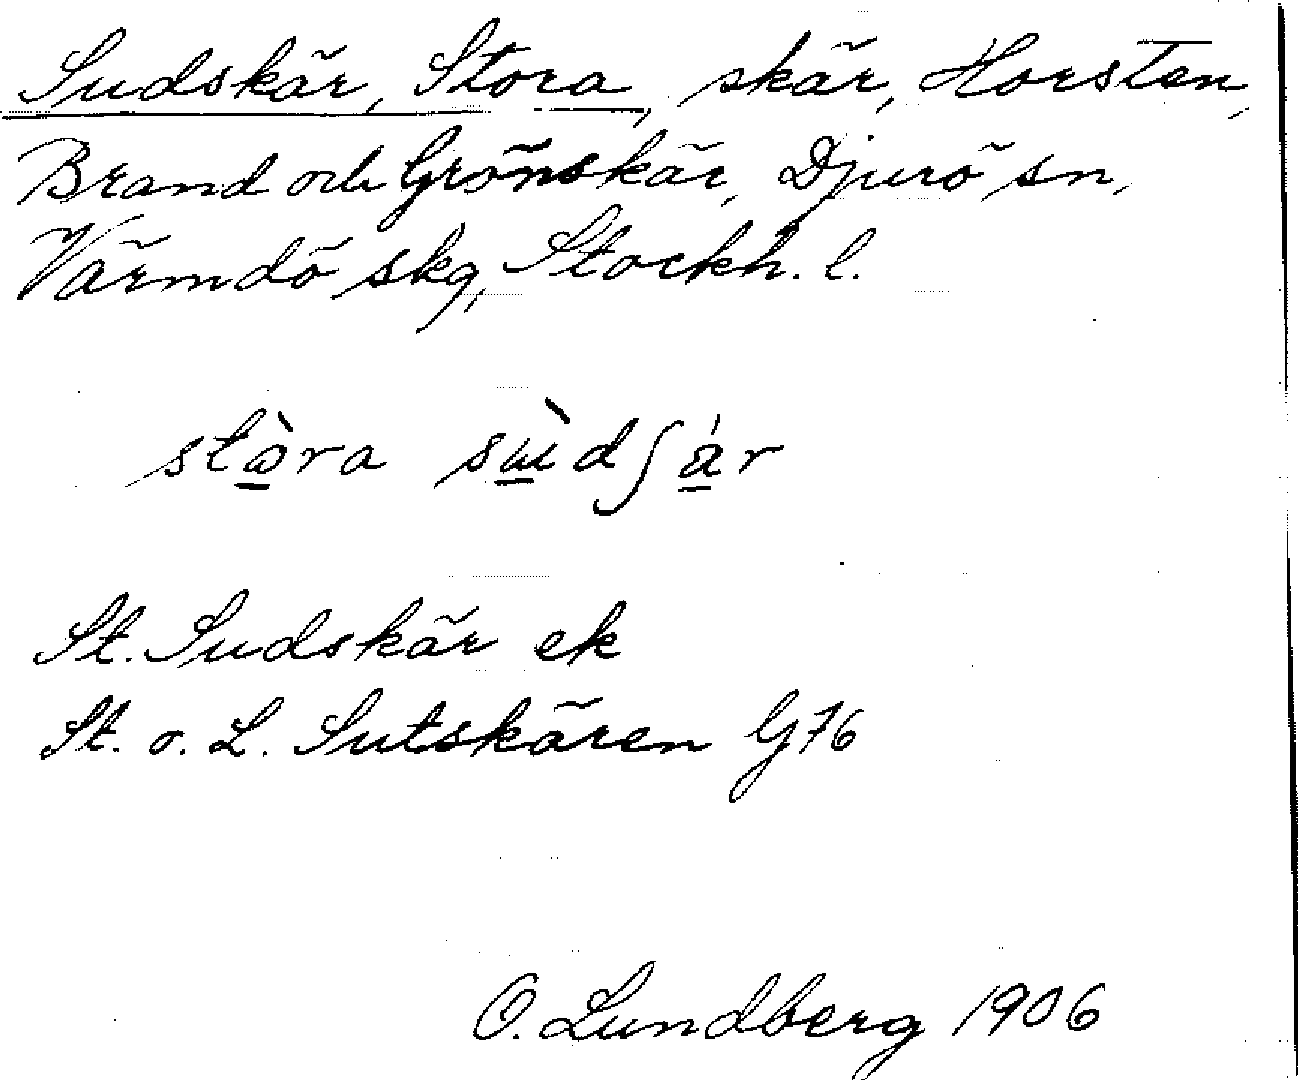 Sudskär, Stora, skär, Horsten,
Brand och Grönskär, Djurö sn,
Värmdö skg, Stockh. l.
stὼra sɯ̀dʃár
St. Sudskär ek
St. o. L. Sutskären G76
O. Lundberg 1906